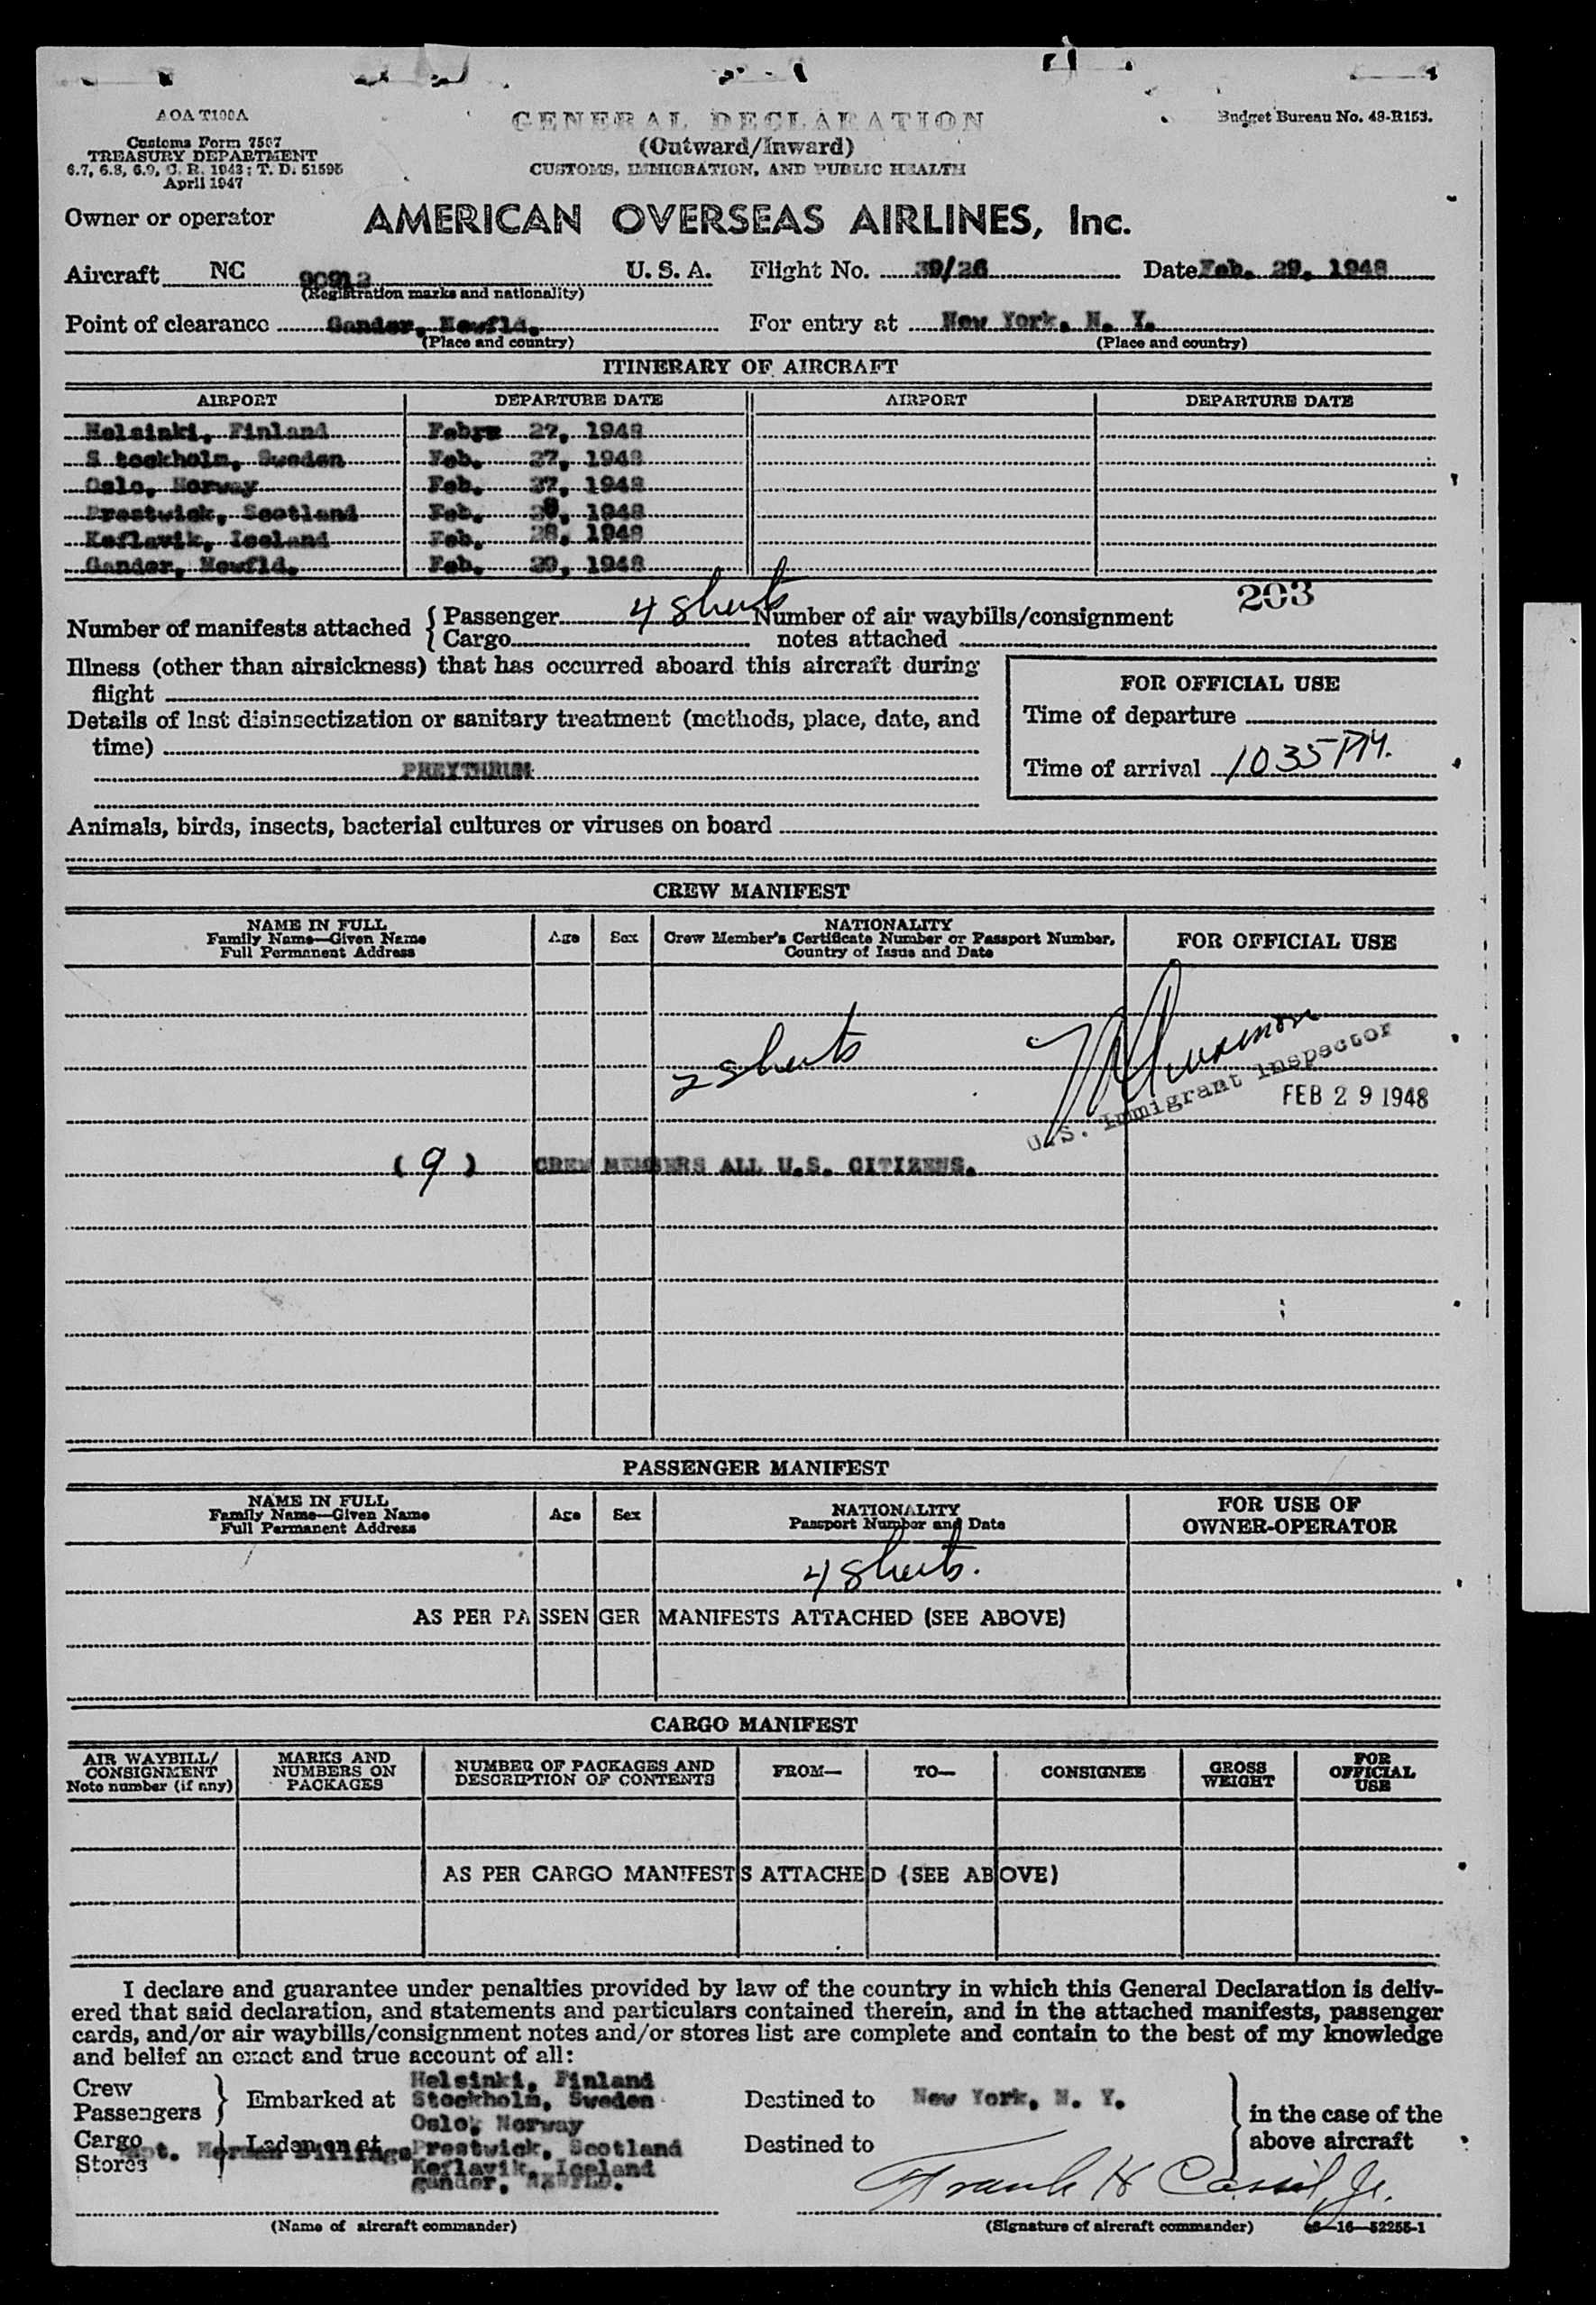 AOA T100A
Customs Form 7507
TREASURY DEPARTMENT
6.7, 6.8, 6.9, C. R. 1943; T. D. 51595
April 1947
GENERAL DECLARATION
(Outward/Inward)
CUSTOMS, IMMIGRATION, AND PUBLIC HEALTH
Budget Bureau No. 48-R153.
Owner or operator AMERICAN OVERSEAS AIRLINES, Inc.
Aircraft NC 90912 U. S. A. Flight No. 39/26 Date Feb. 29, 1948
(Registration marks and nationality)
Point of clearance Gander, Newfld. For entry at New York, N. Y.
(Place and country) (Place and country)
ITINERARY OF AIRCRAFT
AIRPORT DEPARTURE DATE AIRPORT DEPARTURE DATE
Helsinki, Finland 27, 1948
S tockholm, Sweden Feb. 27, 1948
Oslo, Norway Feb. 27, 1948
Prestwick, Scotland Feb. 1948
Keflavik, Iceland Feb. 28, 1948
Gander, Newfld. Feb. 29, 1948
203
Number of manifests attached { Passenger 4 sheets Number of air waybills/consignment
Cargo notes attached
Illness (other than airsickness) that has occurred aboard this aircraft during
flight
Details of last disinsectization or sanitary treatment (methods, place, date, and
time)
PREYTHRUM
FOR OFFICIAL USE
Time of departure
Time of arrival 1035 PM.
Animals, birds, insects, bacterial cultures or viruses on board
CREW MANIFEST
NAME IN FULL
Family Name—Given Name
Full Permanent Address
Age Sex
NATIONALITY
Crew Member's Certificate Number or Passport Number,
Country of Issue and Date
FOR OFFICIAL USE
2 sheets
U.S. Immigrant Inspector
FEB 29 1948
(9) CREW MEMBERS ALL U.S. CITIZENS.
PASSENGER MANIFEST
NAME IN FULL
Family Name—Given Name
Full Permanent Address
Age Sex
NATIONALITY
Passport Number and Date
FOR USE OF
OWNER-OPERATOR
4 sheets.
AS PER PASSENGER MANIFESTS ATTACHED (SEE ABOVE)
CARGO MANIFEST
AIR WAYBILL/
CONSIGNMENT
Note number (if any)
MARKS AND
NUMBERS ON
PACKAGES
NUMBER OF PACKAGES AND
DESCRIPTION OF CONTENTS
FROM— TO— CONSIGNEE
GROSS
WEIGHT
FOR
OFFICIAL
USE
AS PER CARGO MANIFESTS ATTACHED (SEE ABOVE)
I declare and guarantee under penalties provided by law of the country in which this General Declaration is deliv-
ered that said declaration, and statements and particulars contained therein, and in the attached manifests, passenger
cards, and/or air waybills/consignment notes and/or stores list are complete and contain to the best of my knowledge
and belief an exact and true account of all:
Crew
Passengers } Embarked at
Helsinki, Finland
Stockholm, Sweden
Oslo, Norway
Destined to New York, N. Y.
Cargo
Stores } Laden on at
Prestwick, Scotland
Keflavik, Iceland
gander, NEWFLD.
Capt. Herman Billings
Destined to
} in the case of the
above aircraft
Frank H Jr.
(Name of aircraft commander) (Signature of aircraft commander) 16—52255-1